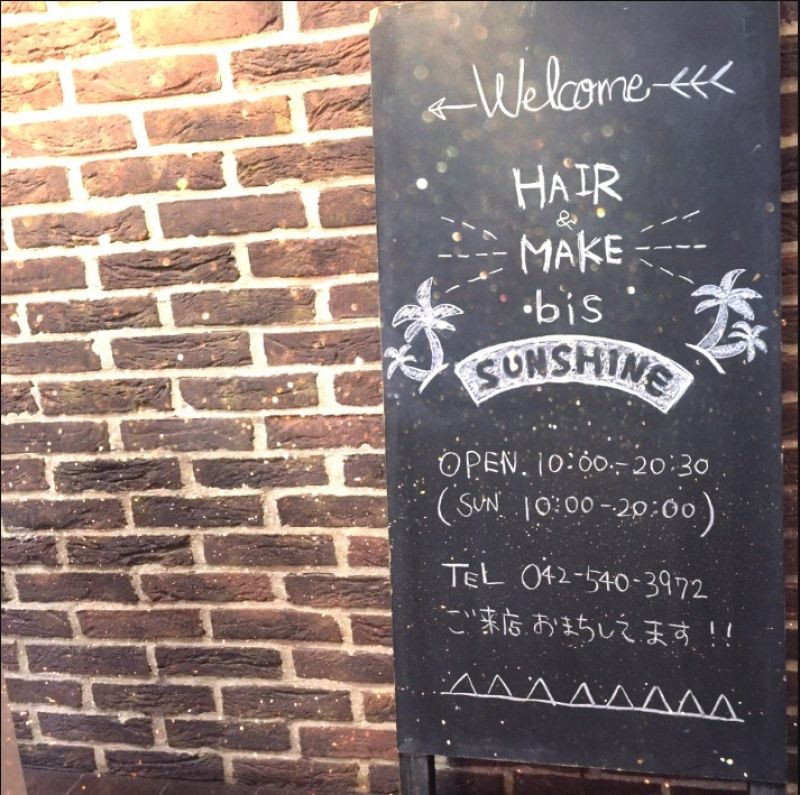 Welcome
HAIR
&
MAKE
bis
SUNSHINE
OPEN. 10:00.-20:30
(SUN 10:00-20:00)
TEL 042-540-3972
ご来店おまちしてます!!